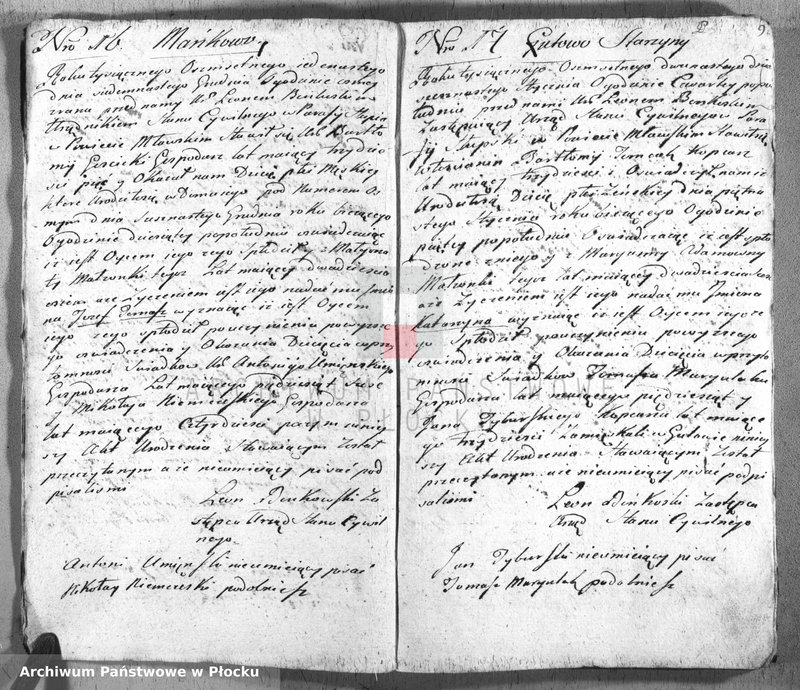 Nro 16 Mańkowo
Roku tysięcznego Osmsetnego iedenastego
dnia siedemnastego Grudnia O godzinie osmey
zrana przed namy Leonem
Urzędnikiem Stanu Cywilnego w Parafyi
w Powiecie Mławskim Stawił się
Gospodarz lat maiący trzydzie
ści pięć y Okazał nam Dziecię płci Męskiey
które Urodziło się w Domu iego pod Numerem Os
mym dnia Grudnia roku bieżącego
O godzinie dziesiątey popołudniu oswiadczaiąc
iż iest Oycem iego iego spłodził z
Małżonki lat maiącey dwadziescia
życzeniem iest iego nadać mu Imio
na Jozef Tomasz wyznaiąc iż iest Oycem
iego iego spłodził po uczynieniu powyższe
go oswiadczenia y Okazania Dziecięcia w przy
tomnosci Swiadkow Antoniego Uminskiego
Gospodarza Lat maiącego piędziesiąt
Mikołaja Niemierskiego Gospodarza
lat maiącego Czterdziesci poczym niniey
szy Akt Urodzenia Stawaiącym Został
przeczytanym a że nieumieiący pisać pod
pisalismi
Leon Binkowski Za
stępca Urząd Stanu Cywil
nego.
Antoni Umiński nieumieiący pisać
Mikołay Niemierski podobnież
9
Nro 17 Gutowo Starzyny
Roku tysięcznego Osmsetnego dwunastego dnia
szesnastego Stycznia O godzinie Czwartey popo
łudniu przed nami Leonem Binkowskim
Zastępuiący Urząd Stanu Cywilnego w Para
fyi w Powiecie Mławskim Stawił się
Włościanin Bartłomy Kopczarz
lat maiący trzydziesci y Oswiadczył nam iż
Urodziło się Dziecię płci Żeńskiey dnia piętna
stego Stycznia roku bieżącego O godzinie
piątey popołudniu Oswiadczaiąc iż iest spło
dzone z niego y z Maryanny Adamowny
Małżonki iego lat maiącey dwadziescia
a że Życzeniem iest iego nadać mu Imiona
Katarzyna wyznaiąc iż iest Oycem iego ie
go Spłodził po uczynieniu powyższego
oswiadczenia y Okazania Dziecięcia w przyto
mnosci Swiadkow Tomasza
Gospodarza lat maiącego piędziesiąt y
Jana Tyburskiego Kopczarza lat maiące
go trzydziesci zamieszkali w Gutowie niniey
szy Akt Urodzenia Stawaiącym Został
przeczytanym a że nieumieiący pisać podpi
salismi
Leon Binkoski Zastępca
Urząd Stanu Cywilnego
Jan Tyburski nieumieiący pisać
Tomasz podobnież
ARCHIWUM PAŃSTWOWE
W PŁOCKU
Archiwum Państwowe w Płocku